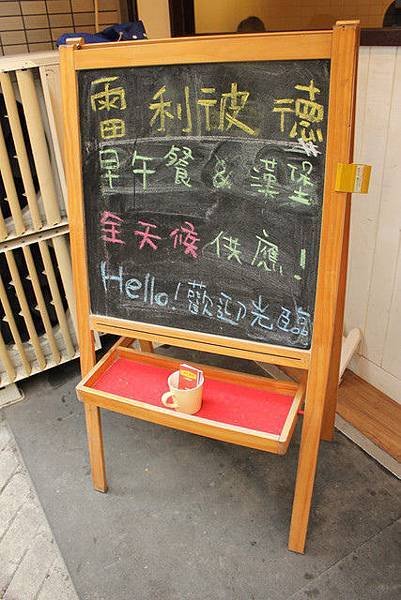 雷利彼德
早午餐 & 漢堡
全天候供應!
Hello! 歡迎光臨